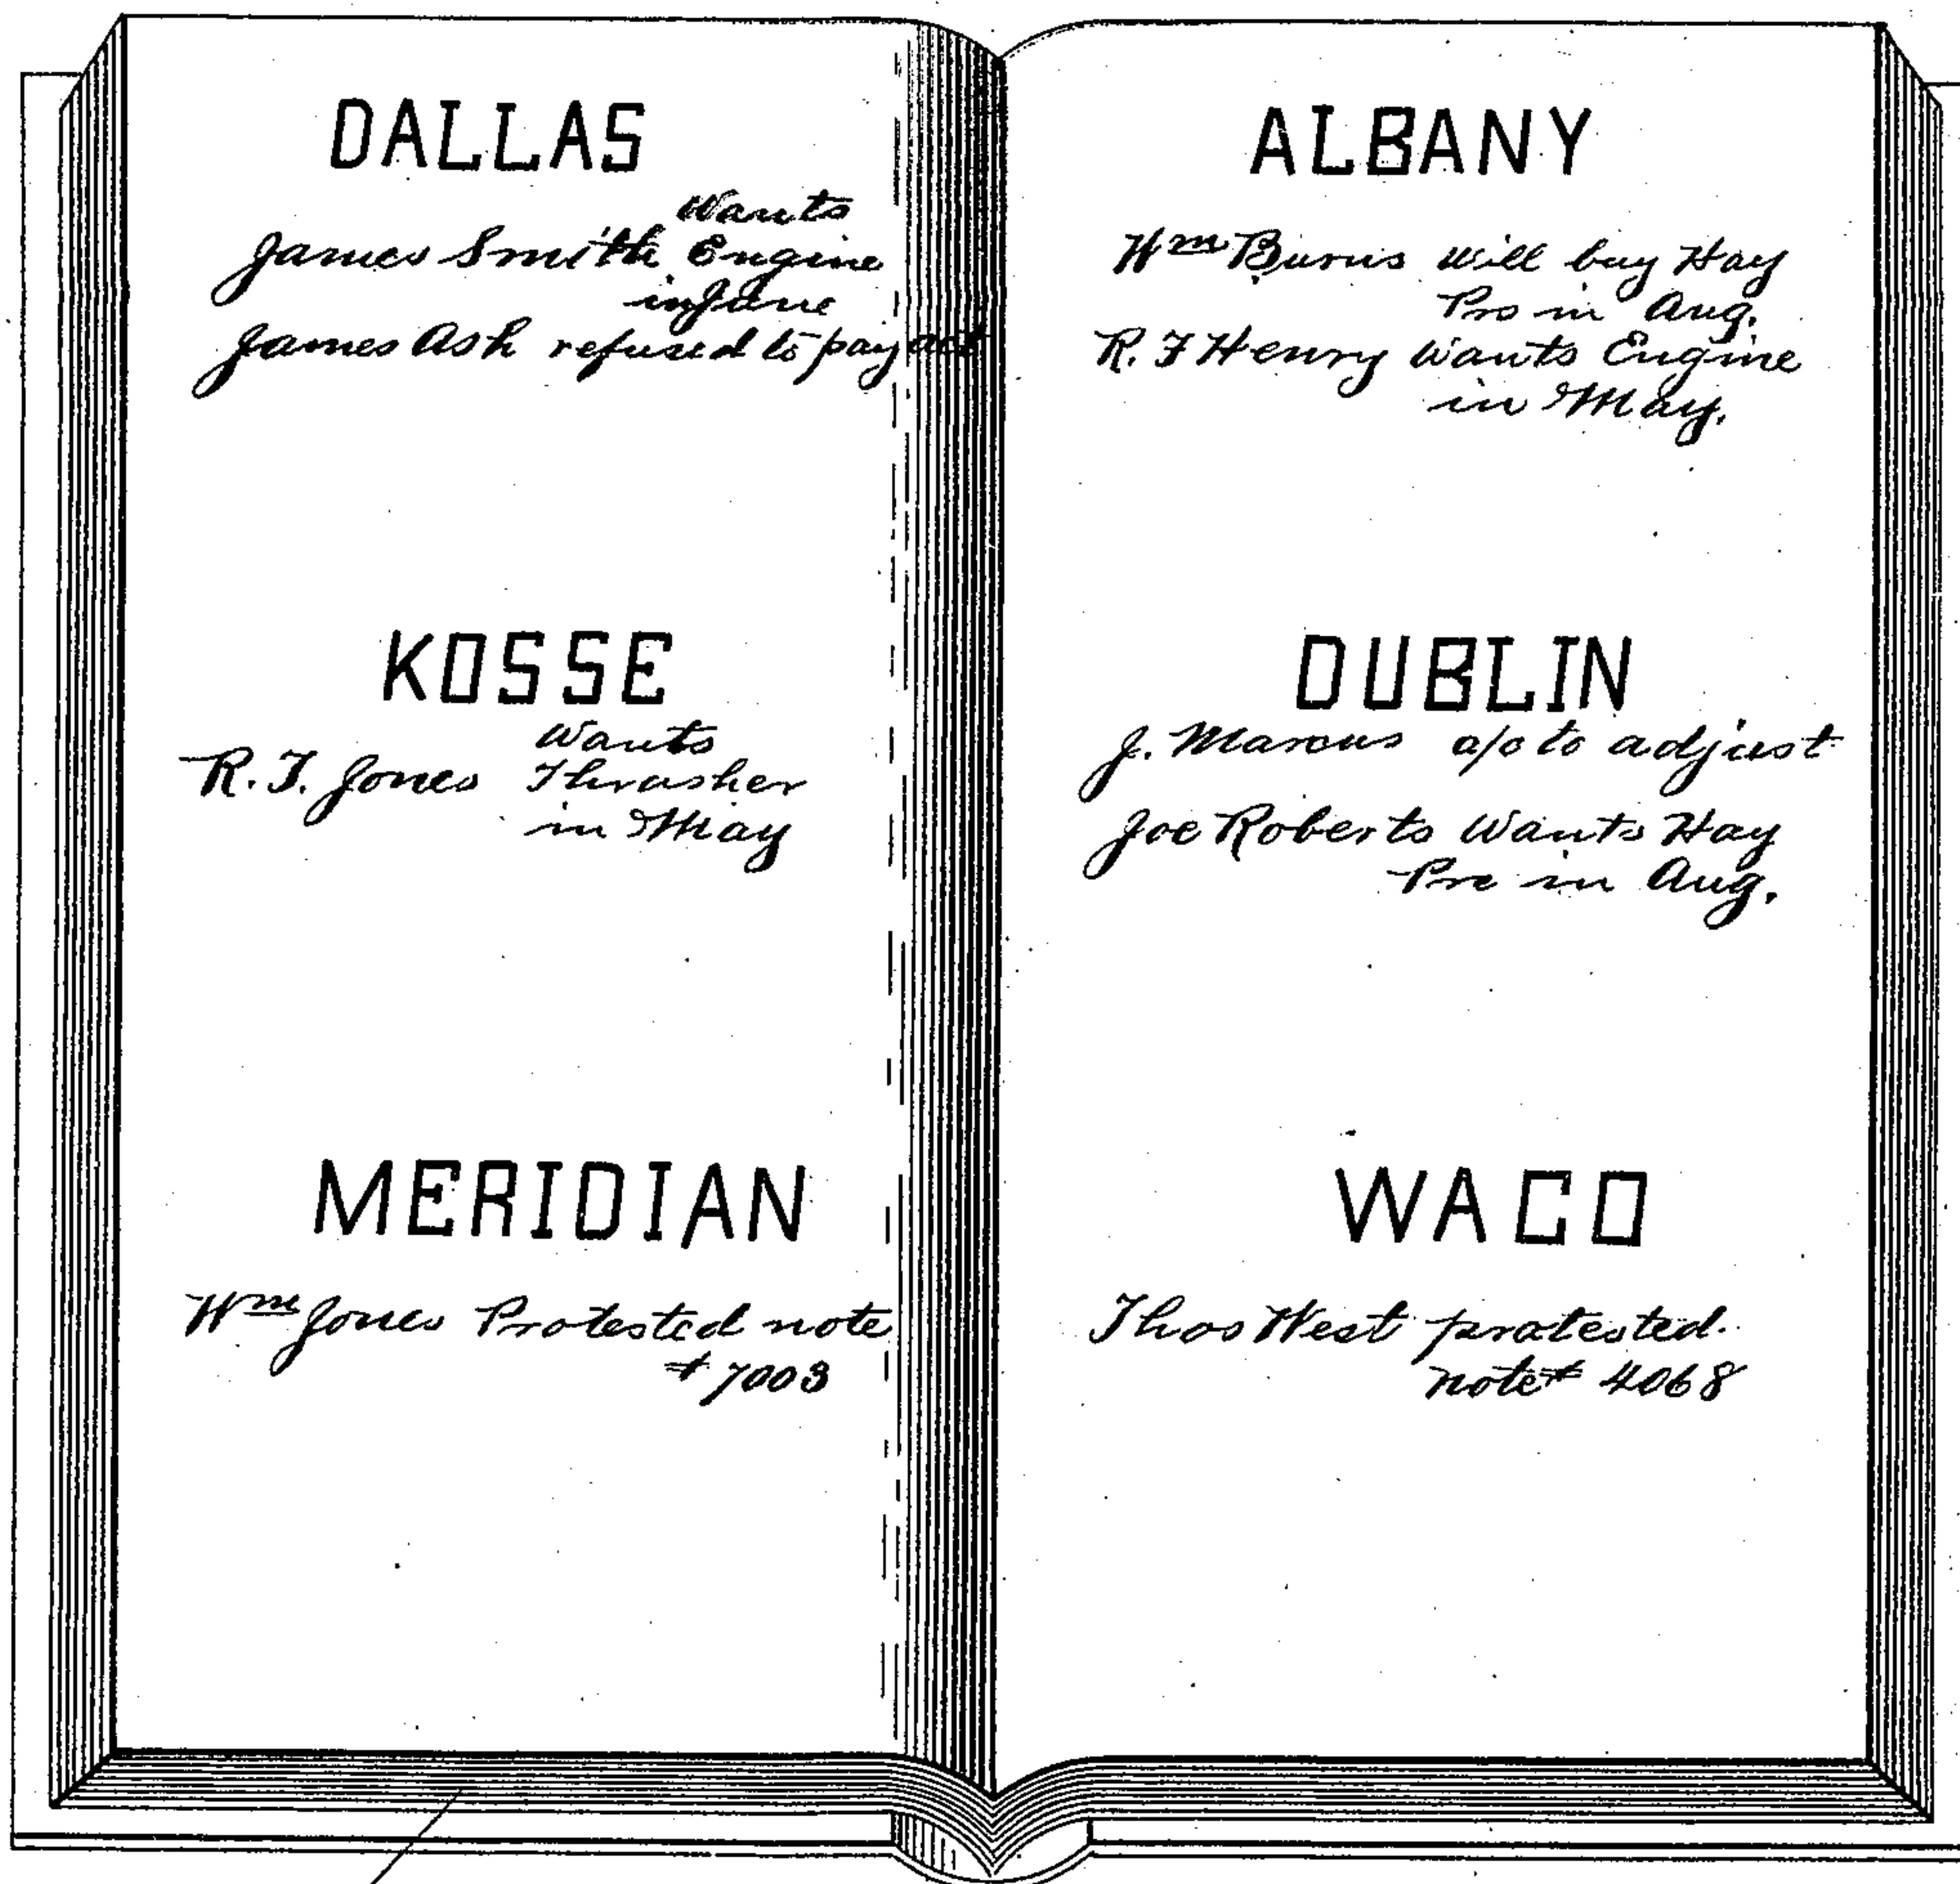 DALLAS
Wants
James Smith Engine
in June
James Ash refused to pay act
KOSSE
Wants
R. T. Jones Thrasher
in May
MERIDIAN
Wm Jones Protested note
# 7003
ALBANY
Wm Burns will buy Hay
Prs in Aug.
R. F Henry Wants Engine
in May.
DUBLIN
J. Marcus a/c to adjust
Joe Roberts Wants Hay
Pre in Aug.
WACO
Thos West protested
note # 4068